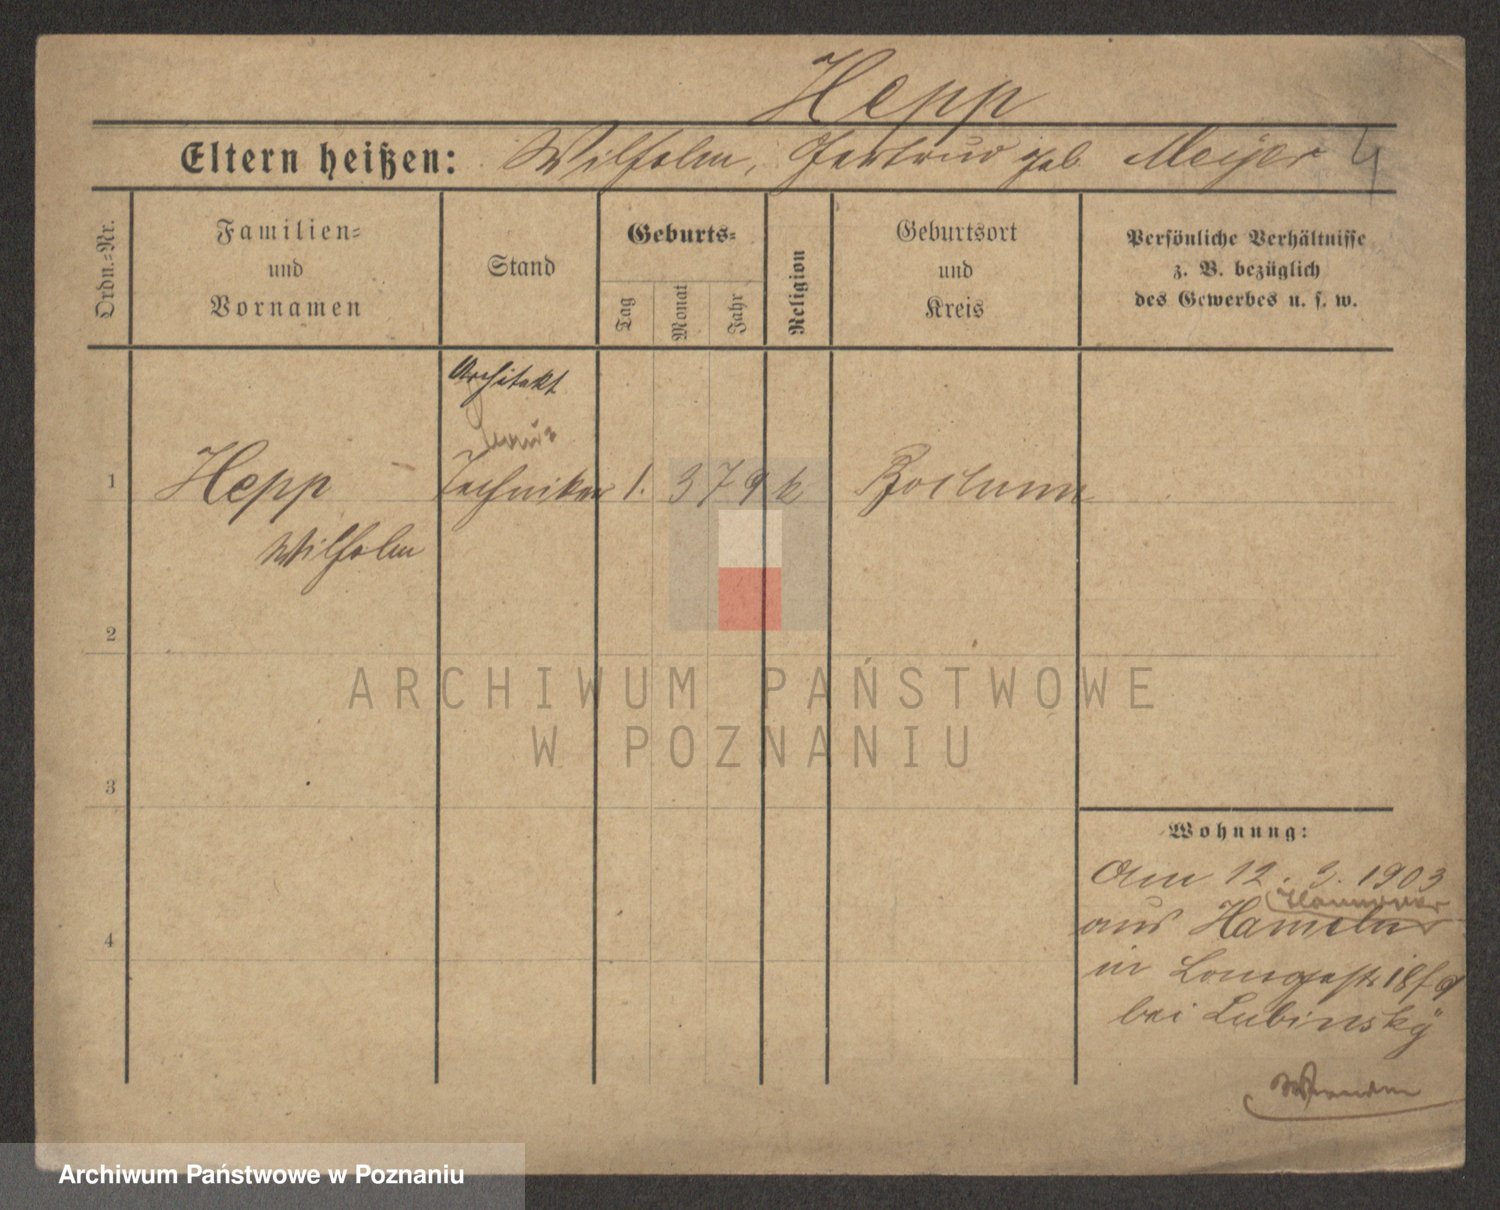 Hepp
Eltern heißen: Wilhelm, Gertrud geb Meyer
Ordn.-Nr.
Familien-
und
Vornamen
Stand
Geburts-
Tag
Monat
Jahr
Religion
Geburtsort
und
Kreis
Persönliche Verhältnisse
z. B. bezüglich
des Gewerbes u. s. w.
Architekt
1 Hepp Techniker 1. 3 79 k Bochum
Wilhelm
2
ARCHIWUM PAŃSTWOWE
W POZNANIU
3
Wohnung:
Am 12. 3. 1903
Hannover
4
aus Hameln
in 18/9
bei Lubinsky
Archiwum Państwowe w Poznaniu